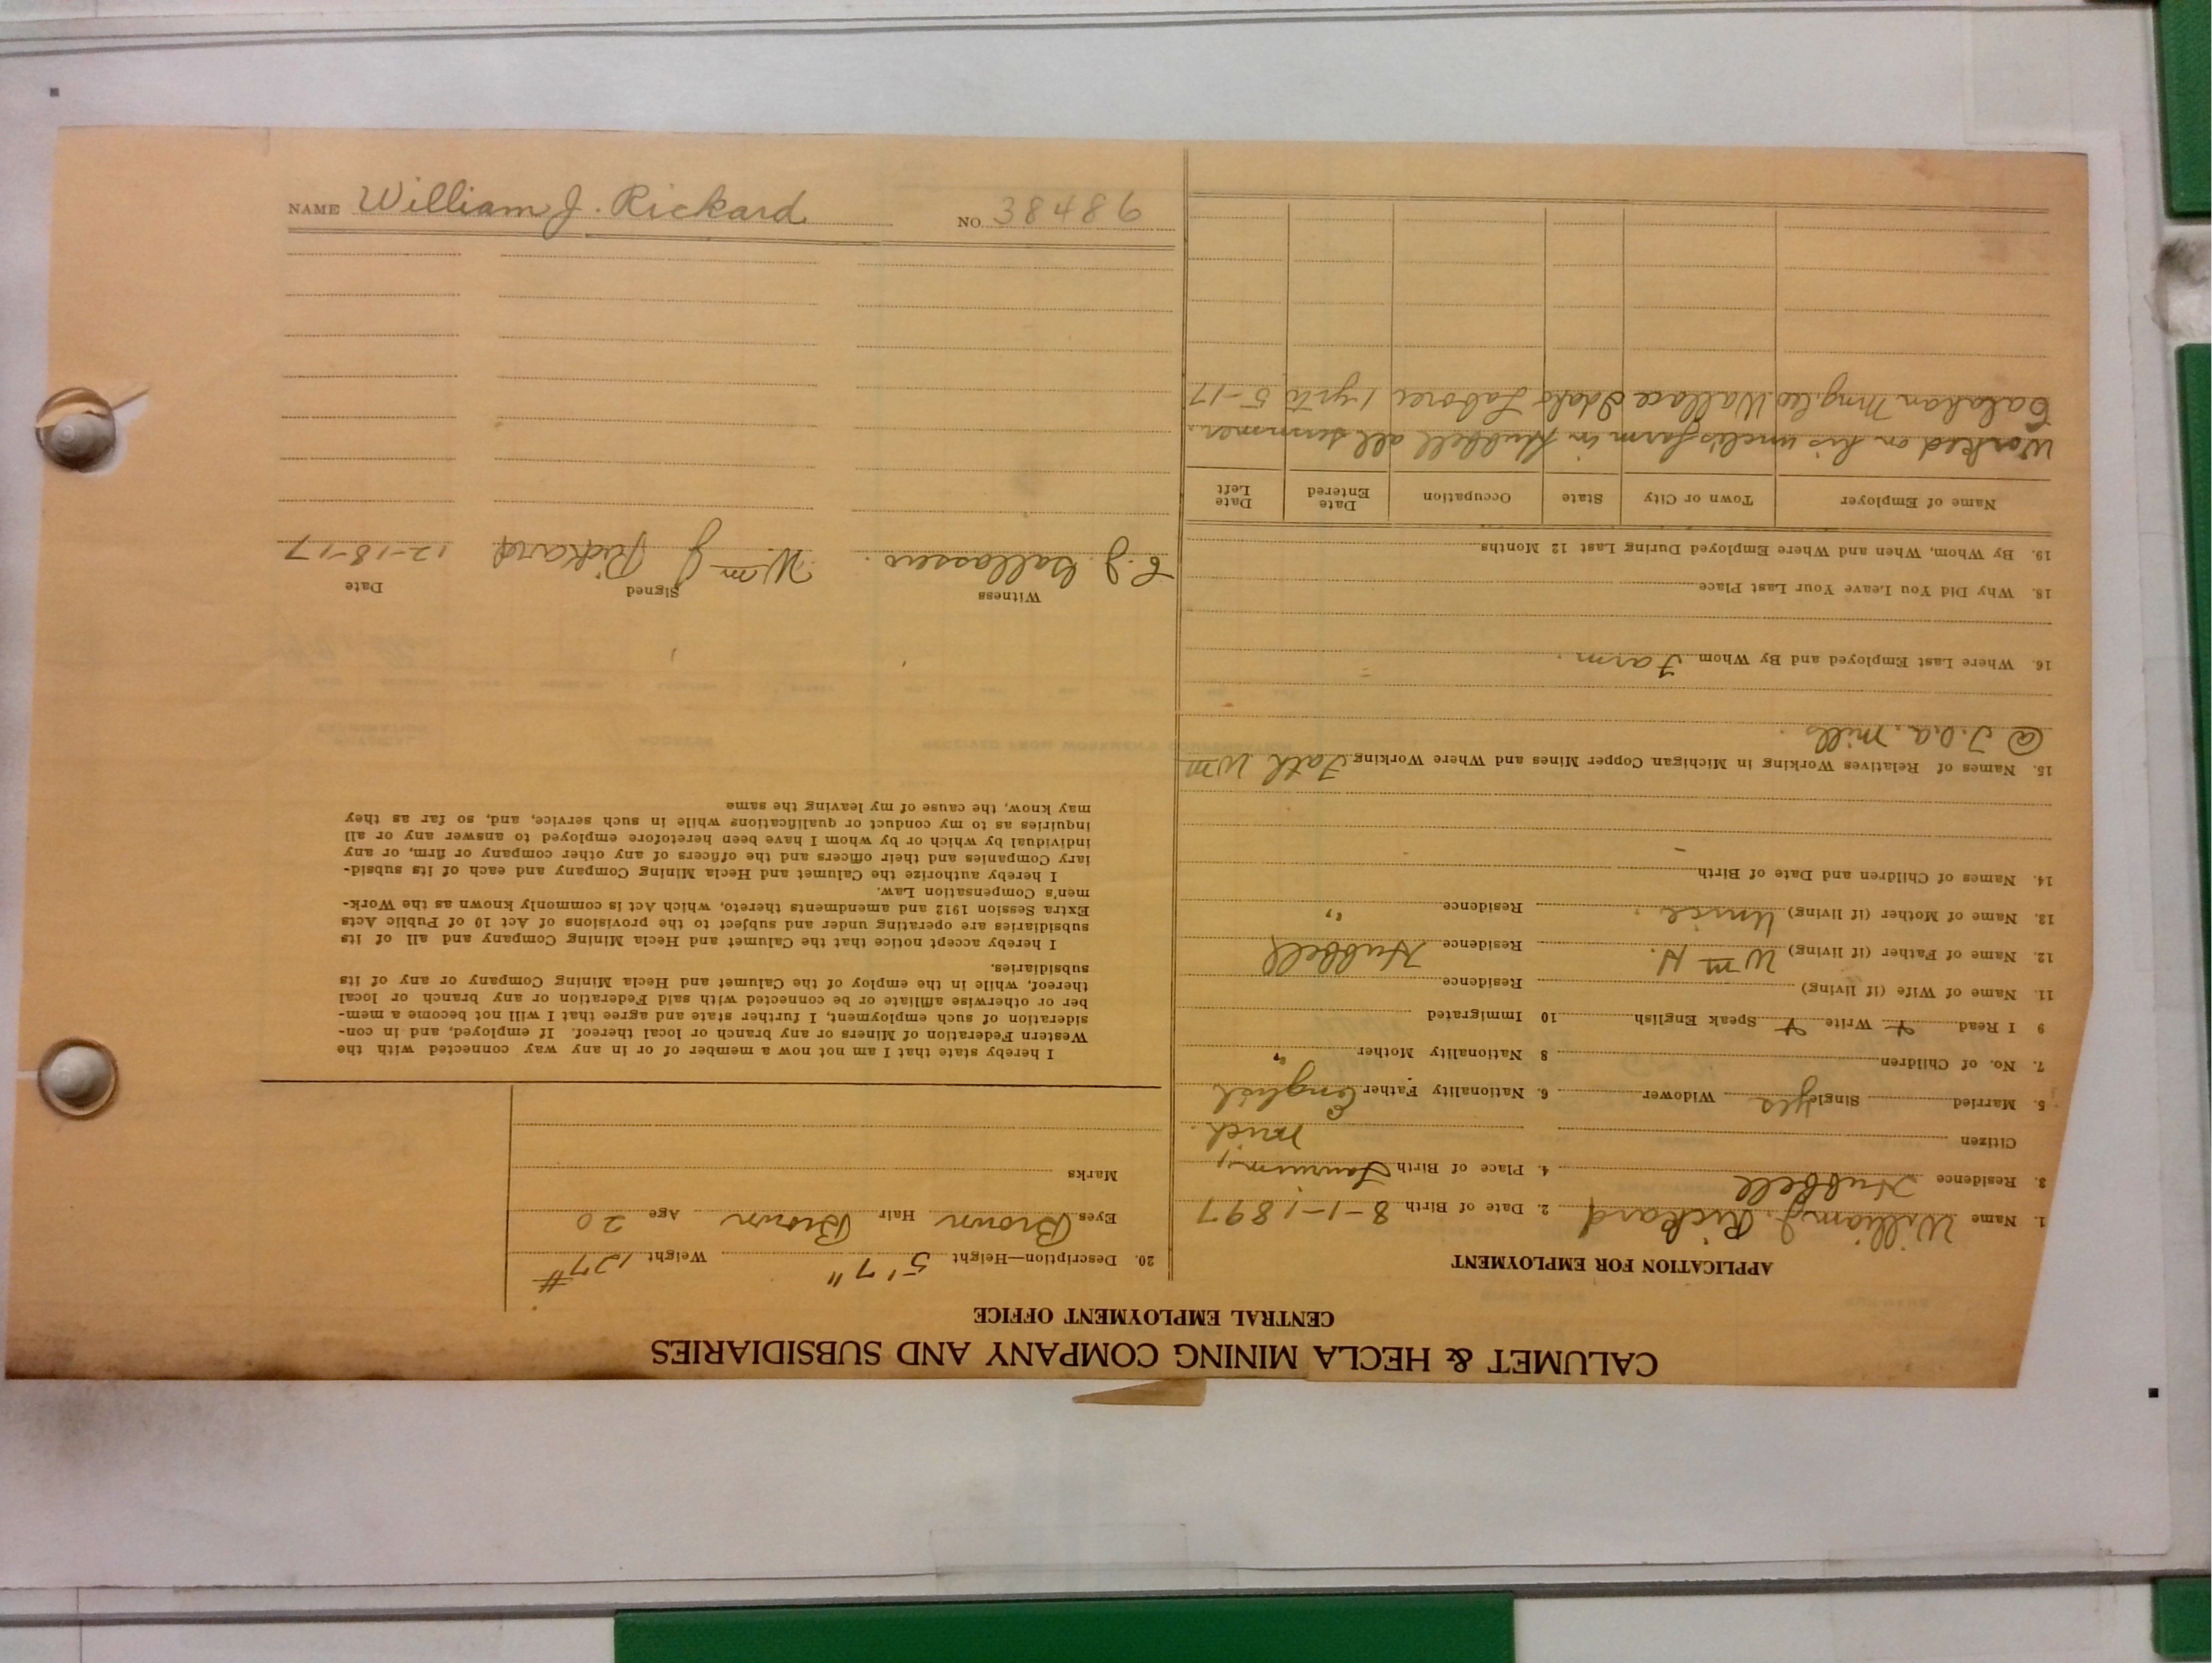 CALUMET & HECLA MINING COMPANY AND SUBSIDIARIES
CENTRAL EMPLOYMENT OFFICE
APPLICATION FOR EMPLOYMENT
1. Name William J. Rickard 2. Date of Birth 8-1-1897
3. Residence Hubbell 4. Place of Birth Laurium,
Citizen Mich.
5. Married Single yes Widower 6. Nationality Father English
7. No. of Children 8 Nationality Mother "
9 I Read Write Speak English 10 Immigrated
11. Name of Wife (if living) Residence
12. Name of Father (if living) Wm H. Residence Hubbell
13. Name of Mother (if living) Residence "
14. Names of Children and Date of Birth
15. Names of Relatives Working in Michigan Copper Mines and Where Working Fath Wm
@ Mills
16. Where Last Employed and By Whom Farm.
18. Why Did You Leave Your Last Place
19. By Whom, When and Where Employed During Last 12 Months
Name of Employer Town or City State Occupation Date Entered Date Left
Worked on his uncle's farm in Hubbell all summer.
Calahan Mng. Co Wallace Idaho Laborer 1 yr to 5-17
20. Description—Height 5'7" Weight 127#
Eyes Brown Hair Brown Age 20
Marks
I hereby state that I am not now a member of or in any way connected with the
Western Federation of Miners or any branch or local thereof. If employed, and in con-
sideration of such employment, I further state and agree that I will not become a mem-
ber or otherwise affiliate or be connected with said Federation or any branch or local
thereof, while in the employ of the Calumet and Hecla Mining Company or any of its
subsidiaries.
I hereby accept notice that the Calumet and Hecla Mining Company and all of its
subsidiaries are operating under and subject to the provisions of Act 10 of Public Acts
Extra Session 1912 and amendments thereto, which Act is commonly known as the Work-
men's Compensation Law.
I hereby authorize the Calumet and Hecla Mining Company and each of its subsid-
iary Companies and their officers and the officers of any other company or firm, or any
individual by which or by whom I have been heretofore employed to answer any or all
inquiries as to my conduct or qualifications while in such service, and, so far as they
may know, the cause of my leaving the same
Witness Signed Date
Wm J Rickard 12-18-17
NAME William J. Rickard NO. 38486